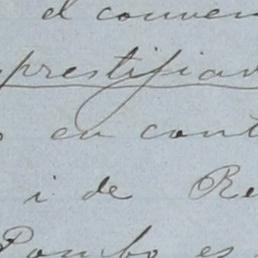 el conven
prestifiad
en cont
i de Re
Pombo es